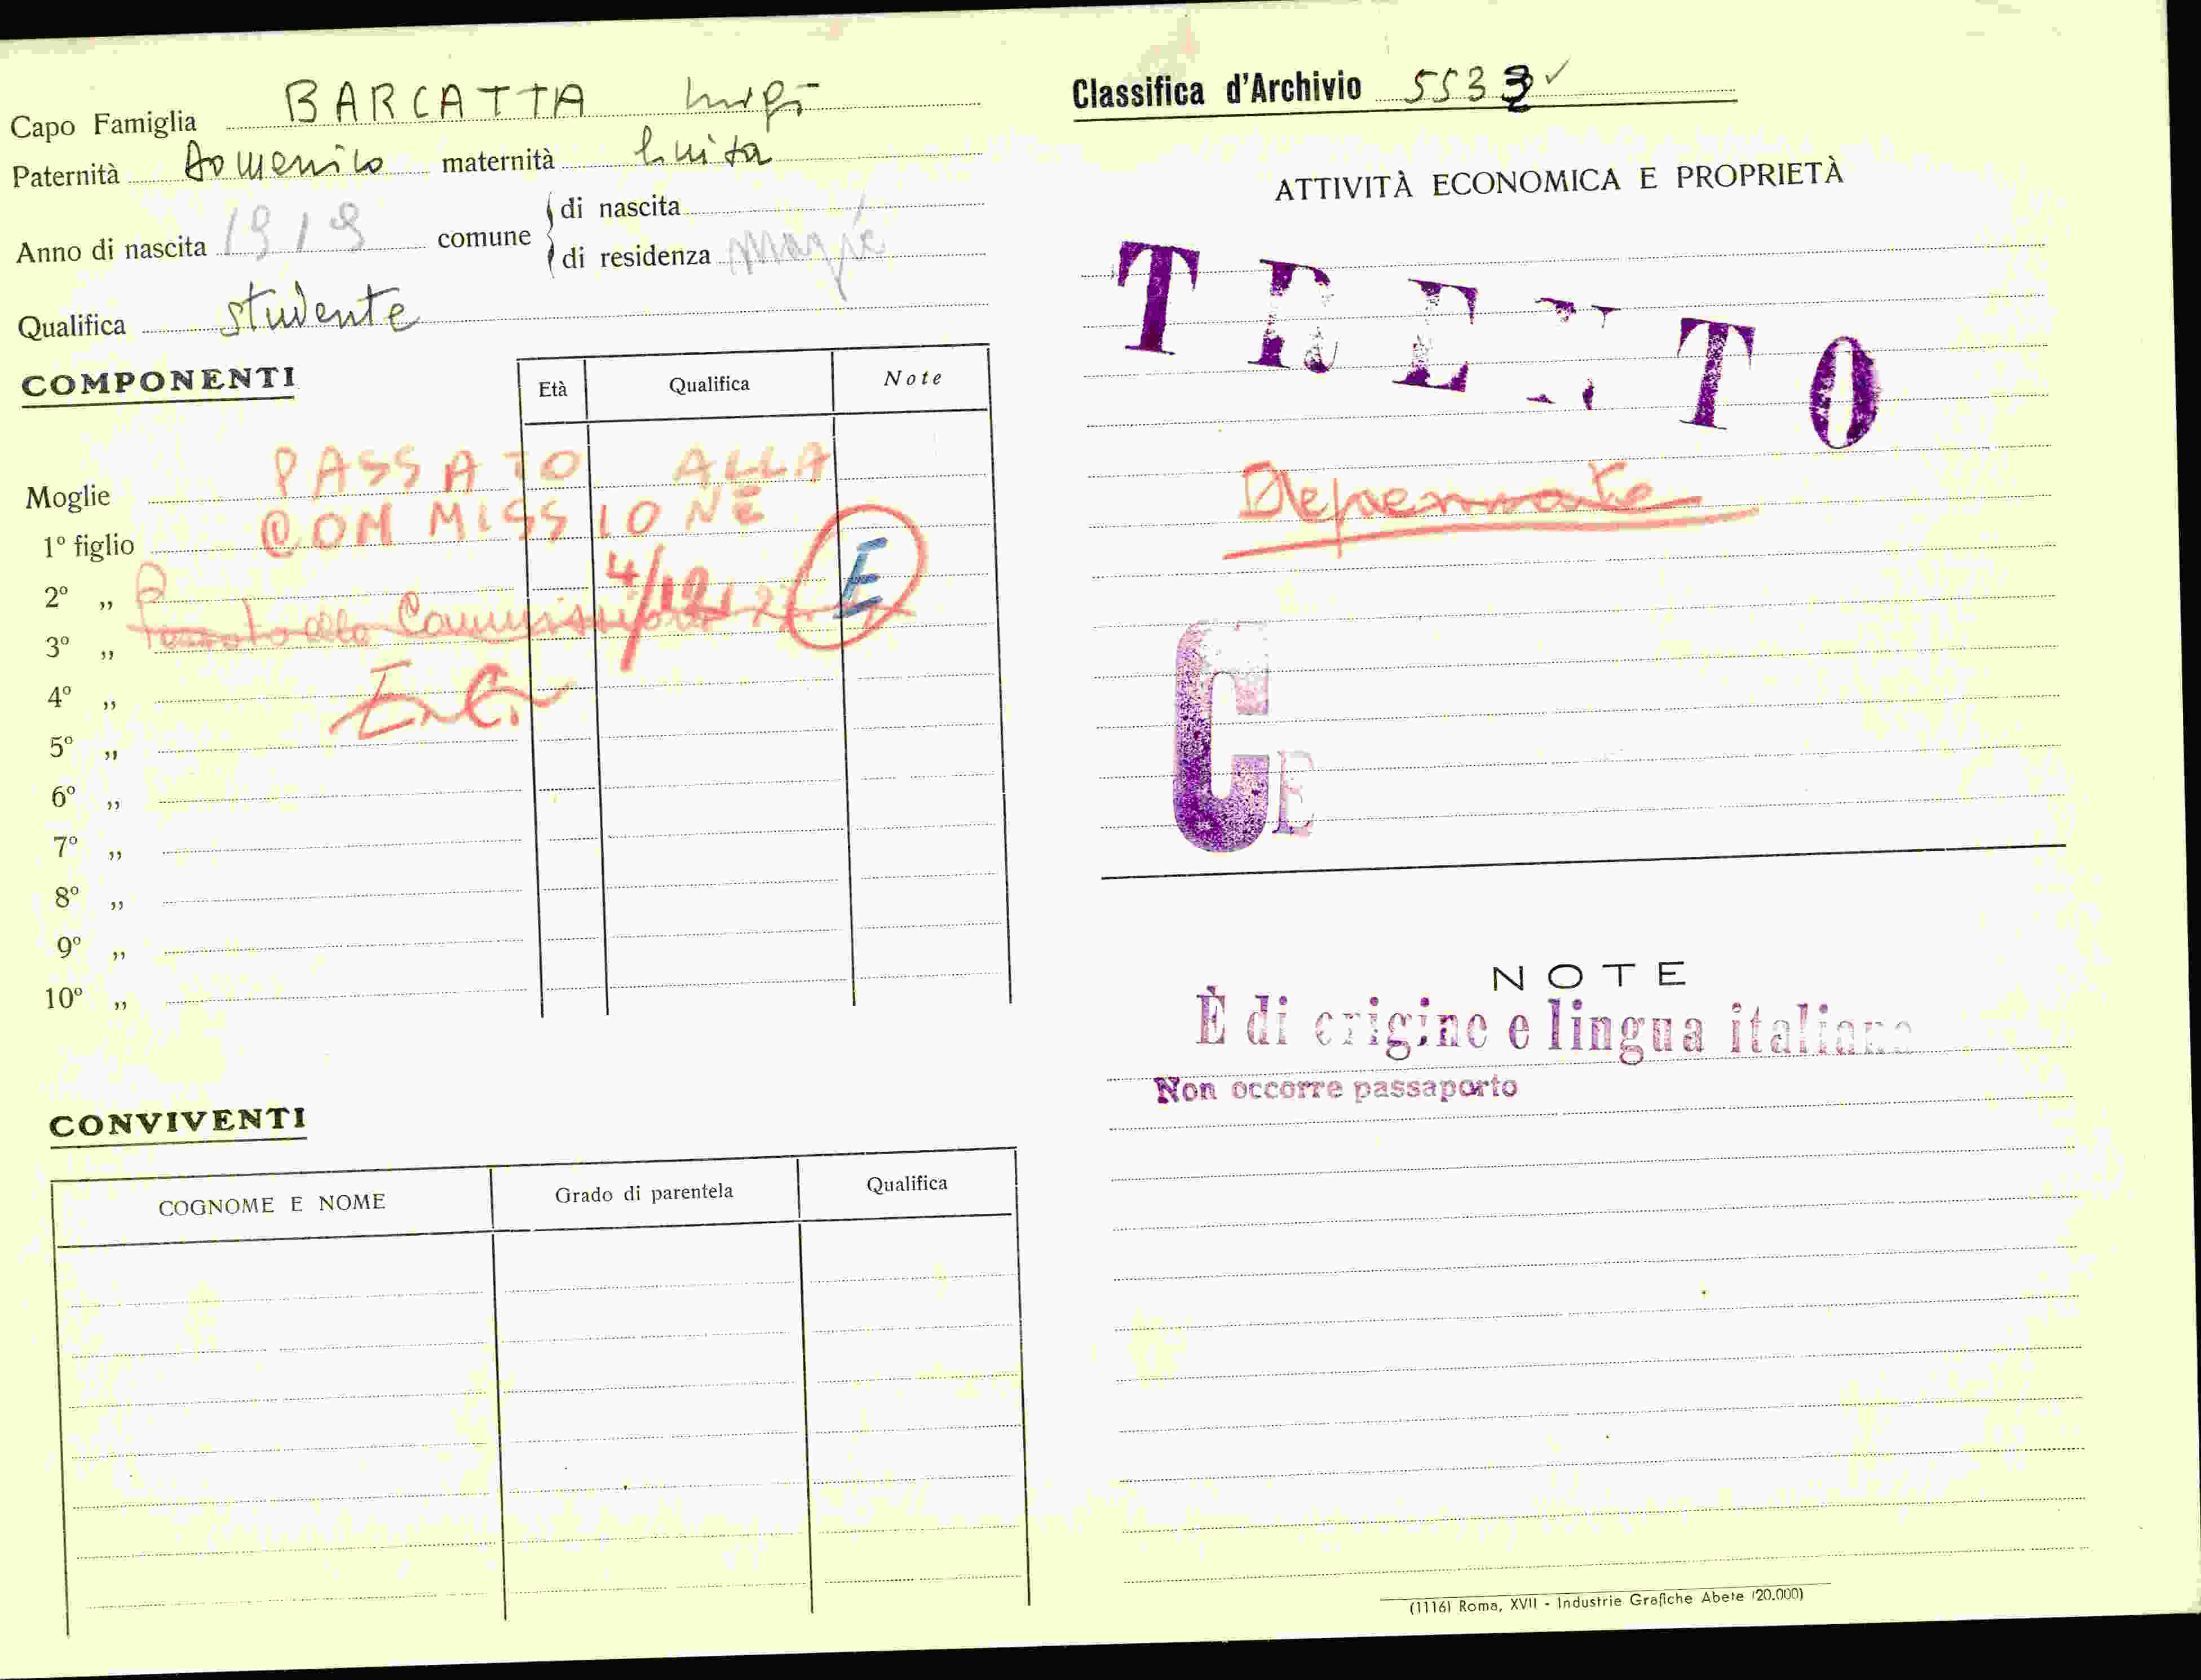 Capo Famiglia BARCATTA Luigi
Paternità Domenico maternità Luita
Anno di nascita 1919 comune di nascita
di residenza
Qualifica studente
COMPONENTI
Età Qualifica Note
PASSATO ALLA
Moglie
COMMISSIONE
1º figlio
4/12 E
2º „
Passato alla Commissione
3º „
4º „
5º „
6º „
7º „
8º „
9º „
10º „
CONVIVENTI
COGNOME E NOME Grado di parentela Qualifica
Classifica d'Archivio 5533 ✓
ATTIVITÀ ECONOMICA E PROPRIETÀ
TRENTO
Depennato
C E
NOTE
È di origine e lingua italiana
Non occorre passaporto
(1116) Roma, XVII - Industrie Grafiche Abete (20.000)